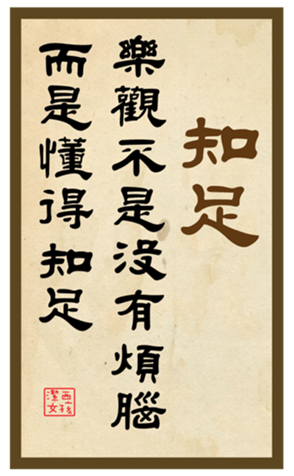 知足
樂觀不是沒有煩腦
而是懂得 知足